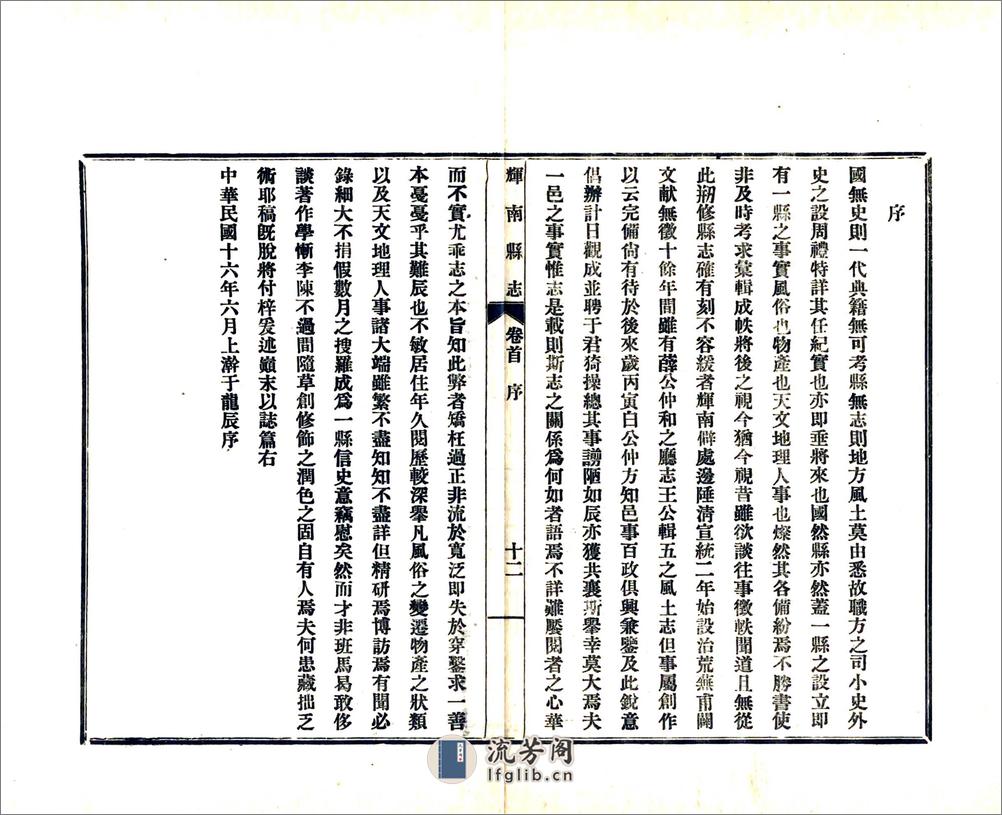 序
國無史則一代典籍無可考縣無志則地方風土莫由悉故職方之司小史外
史之設周禮特詳其任紀實也亦即垂將來也國然縣亦然蓋一縣之設立即
有一縣之事實風俗也物產也天文地理人事也燦然其各備紛焉不勝書使
非及時考求彙輯成帙將後之視今猶今視昔雖欲談往事徵軼聞道且無從
此刱修縣志確有刻不容緩者輝南僻處邊陲清宣統二年始設治荒蕪甫闢
文献無徵十餘年間雖有薛公仲和之廳志王公輯五之風土志但事屬創作
以云完備尙有待於後來歲丙寅白公仲方知邑事百政俱興兼鑒及此銳意
倡辦計日觀成並聘于君猗操總其事謭陋如辰亦獲共襄斯舉幸莫大焉夫
一邑之事實惟志是載則斯志之關係爲何如者語焉不詳難饜閱者之心華
輝南縣志
卷首 序
十二
而不實尤乖志之本旨知此弊者矯枉過正非流於寬泛即失於穿鑿求一善
本戞戞乎其難辰也不敏居住年久閱歷較深舉凡風俗之變遷物產之狀類
以及天文地理人事諸大端雖繁不盡知知不盡詳但精研焉博訪焉有聞必
錄細大不捐假數月之搜羅成爲一縣信史意竊慰矣然而才非班馬曷敢侈
談著作學慚李陳不過間隨草創修飾之潤色之固自有人焉夫何患藏拙乏
術耶稿旣脫將付梓爰述巔末以誌篇右
中華民國十六年六月上澣于龍辰序
流芳阁
lfglib.cn